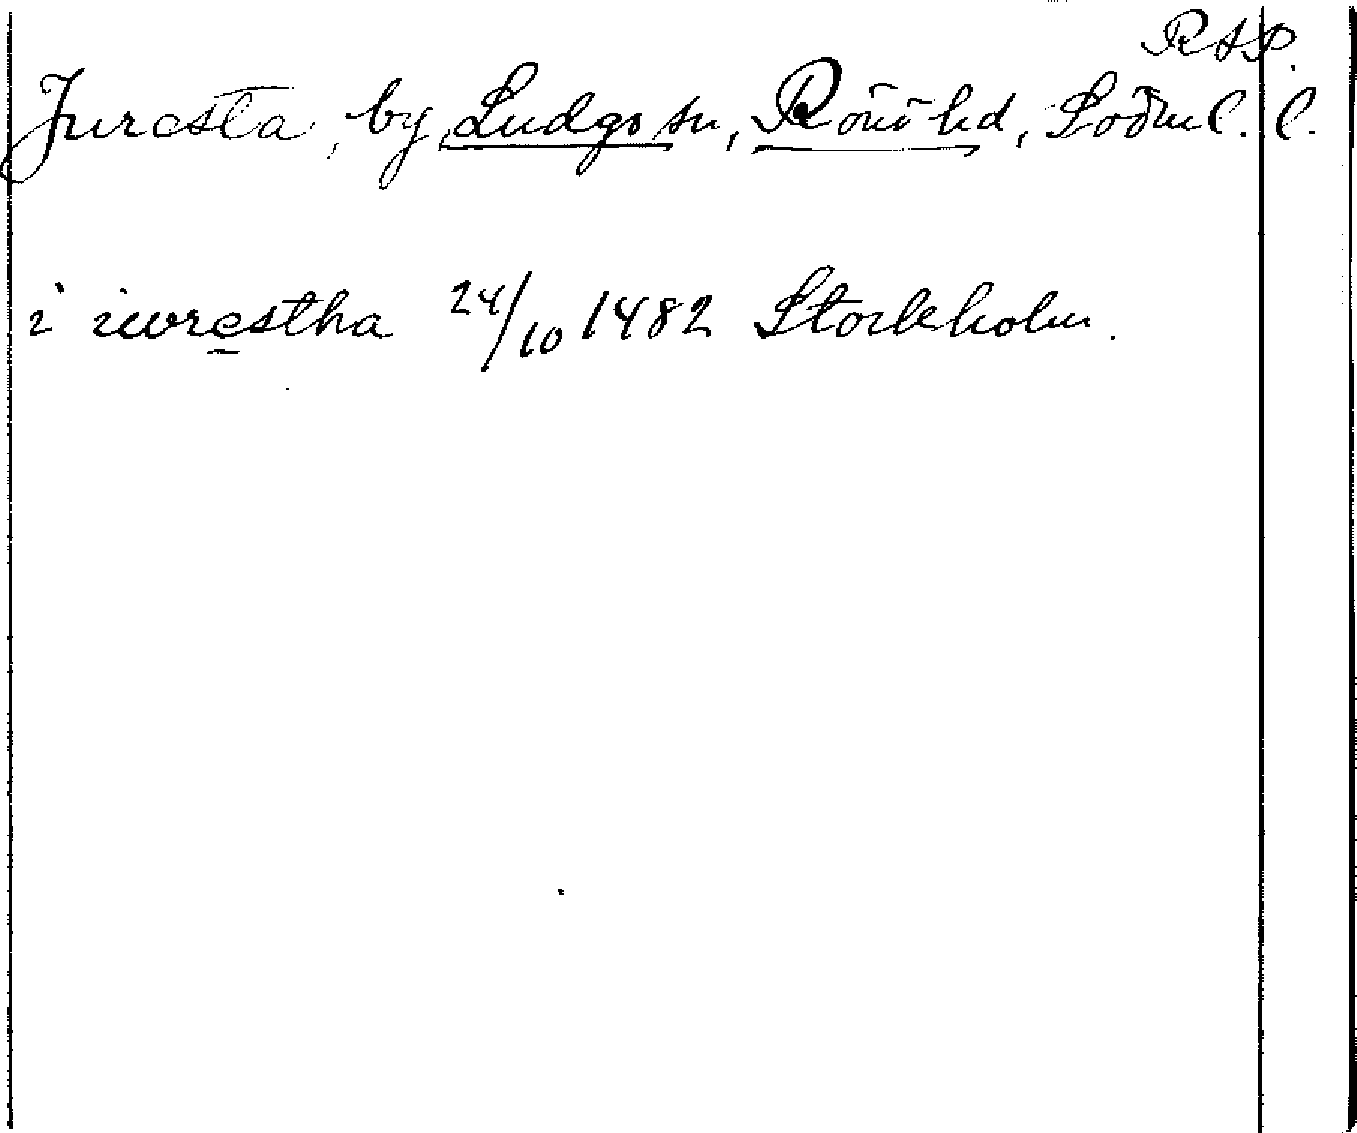 RAP.
Juresta, by, Ludgo sn, Rönö hd, Södml. l.
i iwrestha 24/10 1482 Stockholm.